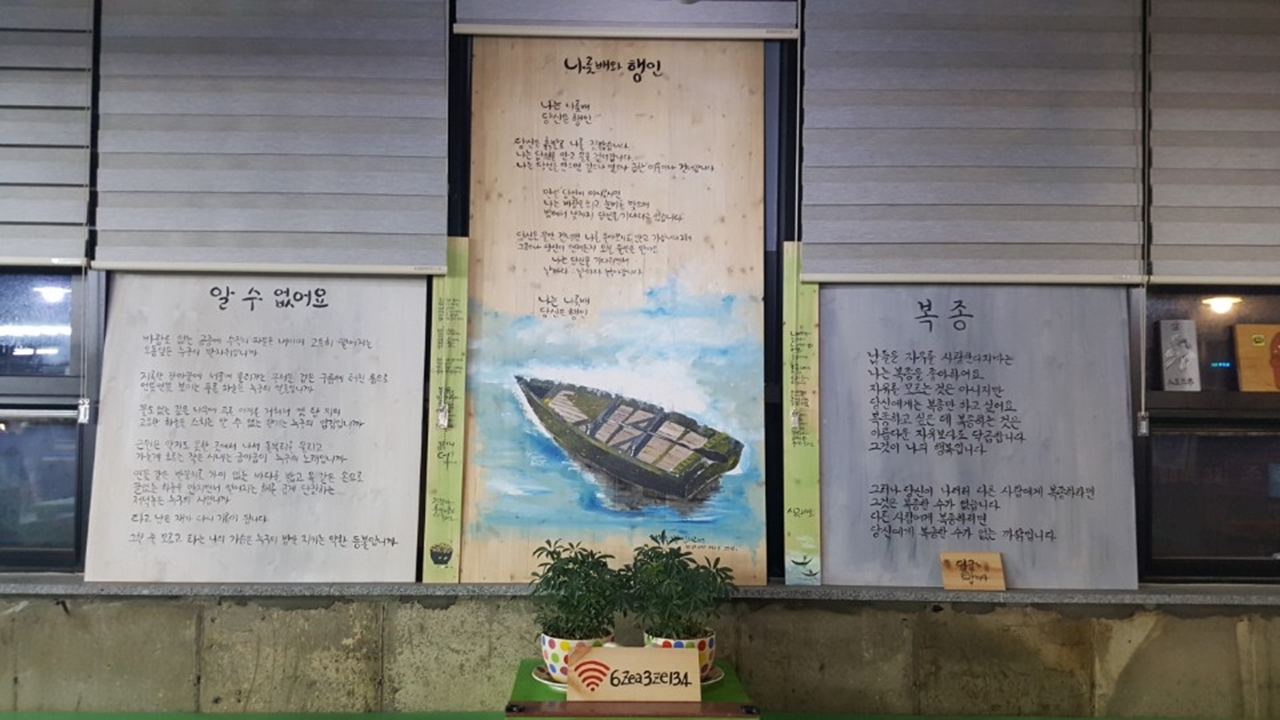 알 수 없어요
바람도 없는 공중에 수직의 파문을 내이며 고요히 떨어지는
오동잎은 누구의 발자취입니까
지리한 장마끝에 서풍에 몰려가는 무서운 검은 구름의 터진 틈으로
언뜻언뜻 보이는 푸른 하늘은 누구의 얼굴입니까
꽃도 없는 깊은 나무에 푸른 이끼를 거쳐서 옛 탑 위의
고요한 하늘을 스치는 알 수 없는 향기는 누구의 입김입니까
근원은 알지도 못할 곳에서 나서 돌부리를 울리고
가늘게 흐르는 작은 시내는 굽이굽이 누구의 노래입니까
연꽃 같은 발꿈치로 가이 없는 바다를 밟고 옥 같은 손으로
끝없는 하늘을 만지면서 떨어지는 해를 곱게 단장하는
저녁놀은 누구의 시입니까
타고 남은 재가 다시 기름이 됩니다
그칠 줄 모르고 타는 나의 가슴은 누구의 밤을 지키는 약한 등불입니까
나룻배와 행인
나는 나룻배
당신은 행인
당신은 흙발로 나를 짓밟습니다
나는 당신을 안고 물을 건너갑니다
나는 당신을 안으면 깊으나 옅으나 급한 여울이나 건너갑니다
만일 당신이 아니오시면
나는 바람을 쐬고 눈비를 맞으며
밤에서 낮까지 당신을 기다리고 있습니다
당신은 물만 건너면 나를 돌아보지도 않고 가십니다그려
그러나 당신이 언제든지 오실 줄만은 알아요
나는 당신을 기다리면서
날마다 날마다 낡아갑니다
나는 나룻배
당신은 행인
복종
남들은 자유를 사랑한다지마는
나는 복종을 좋아하여요
자유를 모르는 것은 아니지만
당신에게는 복종만 하고 싶어요
복종하고 싶은 데 복종하는 것은
아름다운 자유보다도 달콤합니다
그것이 나의 행복입니다
그러나 당신이 나더러 다른 사람에게 복종하라면
그것은 복종할 수가 없습니다
다른 사람에게 복종하려면
당신에게 복종할 수가 없는 까닭입니다
6zea3ze134